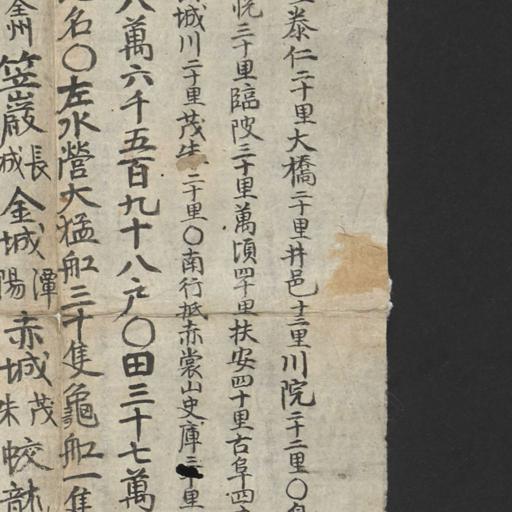 泰仁二十里大橋三十里井邑十三里川院二十二里〇
三十里臨陂三十里萬頃四十里扶安四十里古阜四
城川二十里茂朱二十里〇南行抵赤裳山史庫三十里
八萬六千五百九十八戶〇田三十七萬
名〇左水營大猛船三十隻龜船一隻
全州 笠巖 長城 金城 潭陽 赤城 茂朱 蛟龍